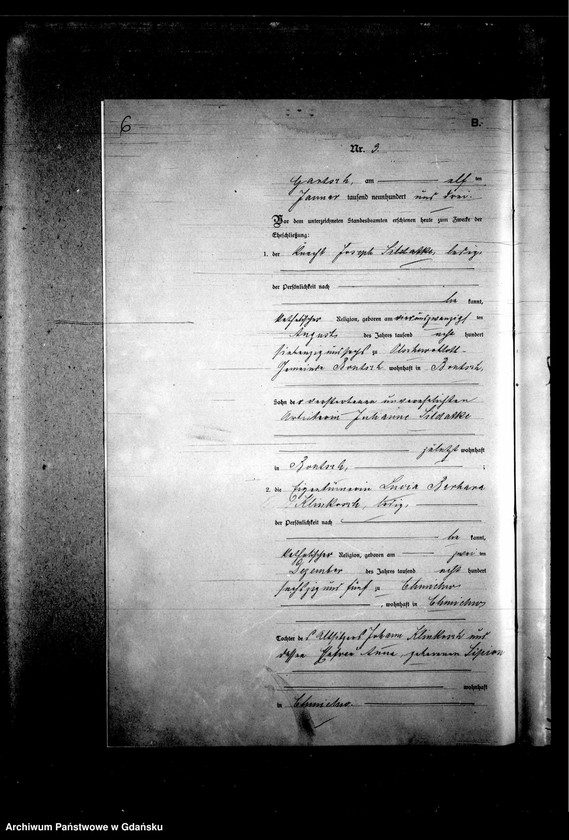 6
B.
Nr. 3.
am elf ten
Januar tausend neunhundert und drei.
Vor dem unterzeichneten Standesbeamten erschienen heute zum Zwecke der
Eheschließung:
1. der Knecht Joseph ledig,
der Persönlichkeit nach
be kannt,
katholischer Religion, geboren am vierundzwanzigsten
August des Jahres tausend acht hundert
siebenzig und sechs zu
Gemeinde wohnhaft in
Sohn der verstorbenen unverehelichten
Arbeiterin Julianne
zuletzt wohnhaft
in ;
2. die Eigentümerin Lucia Barbara
Klinkosch, ledig,
der Persönlichkeit nach
be kannt,
katholischer Religion, geboren am zwei ten
Dezember des Jahres tausend acht hundert
sechzig und fünf zu Chmielno
, wohnhaft in Chmielno
Tochter des Altsitzers Johann Klinkosch und
dessen Ehefrau Anna geborenen
wohnhaft
in Chmielno.
Archiwum Państwowe w Gdańsku